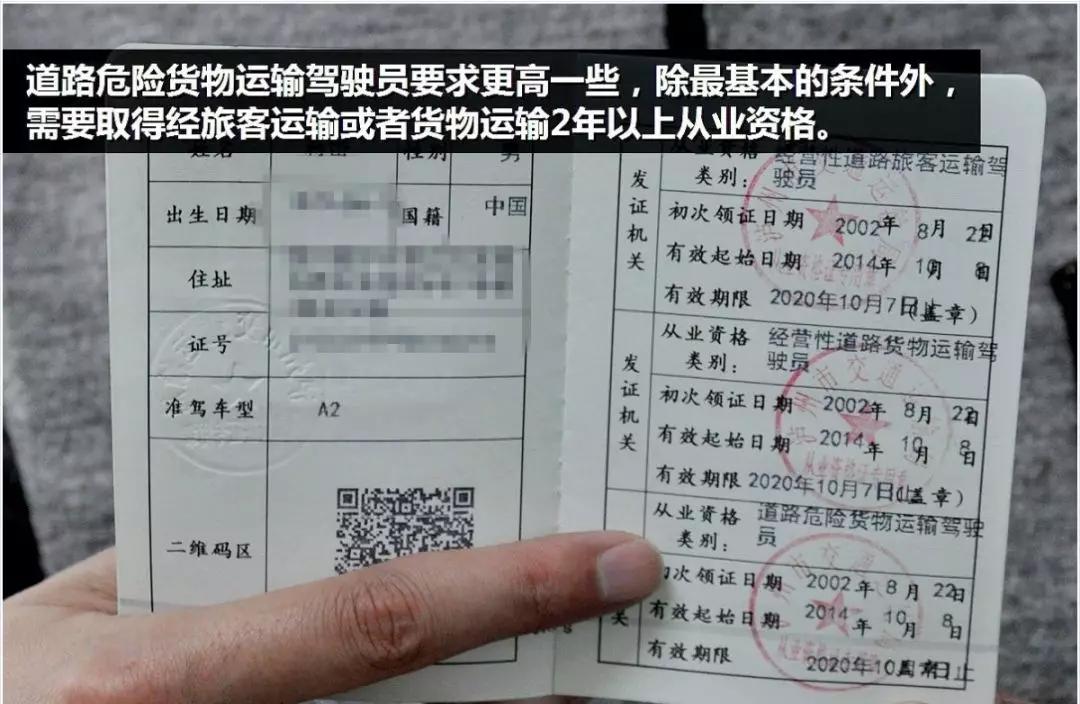 道路危险货物运输驾驶员要求更高一些，除最基本的条件外，
需要取得经旅客运输或者货物运输2年以上从业资格。
姓名 性别 男
出生日期 国籍 中国
住址
证号
准驾车型 A2
二维码区
发证机关
从业资格类别： 经营性道路旅客运输驾驶员
初次领证日期 2002年 8月 22日
有效起始日期 2014年 10月 8日
有效期限 2020年10月7日止
（盖章）
发证机关
从业资格类别： 经营性道路货物运输驾驶员
初次领证日期 2002年 8月 22日
有效起始日期 2014年 10月 8日
有效期限 2020年10月7日止
（盖章）
关
从业资格类别： 道路危险货物运输驾驶员
初次领证日期 2002年 8月 22日
有效起始日期 2014年 10月 8日
有效期限 2020年10月 止